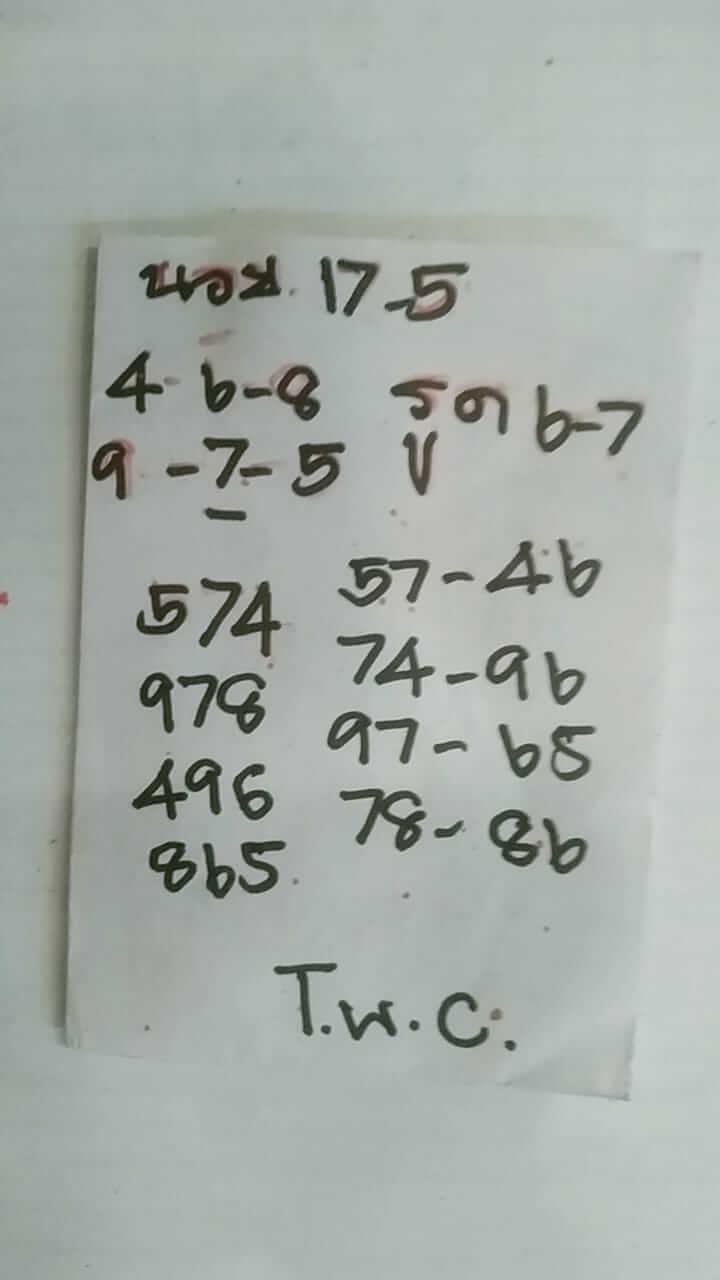 นอย. 17-5
4-6-8 รูด 6-7
9-7-5
574 57-46
978 74-96
496 97-65
865. 78-86
T.W.C.